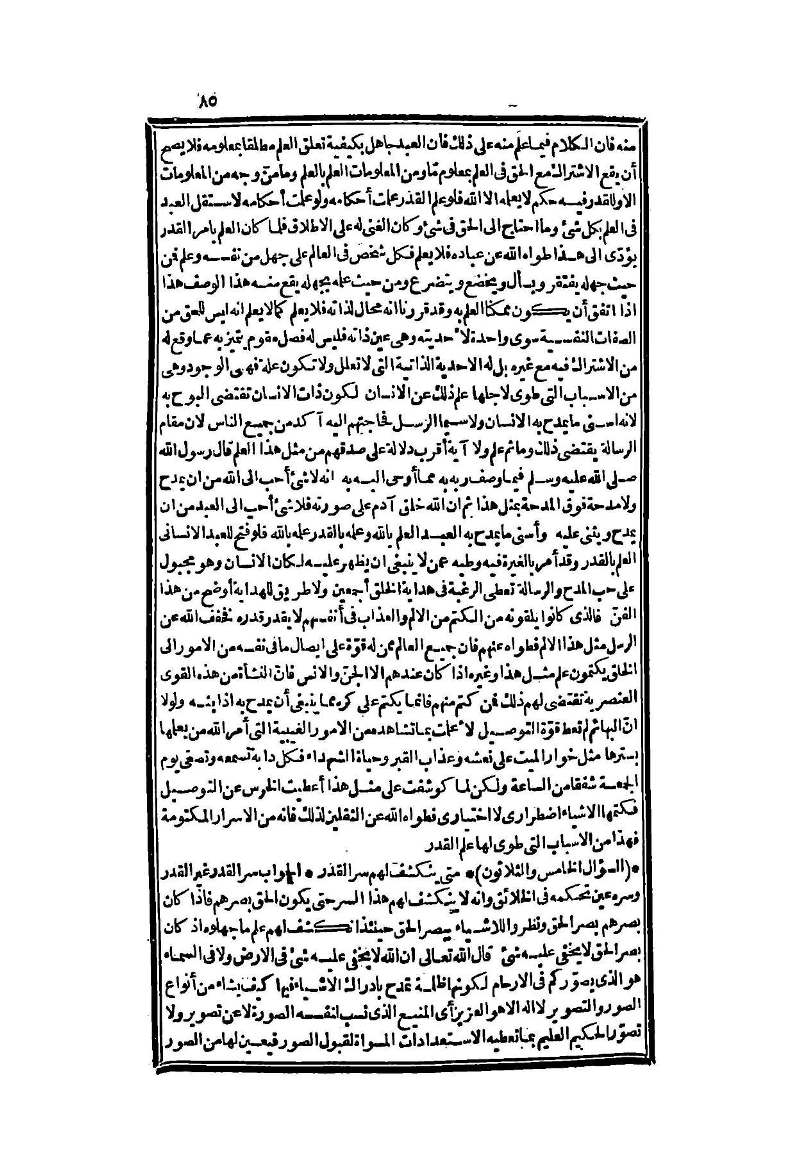 ٨٥
منه فان الكلام فيما علم منه على ذلك فان العبد جاهل بكيفية تعلق العلم مطلقا بمعلومه فلا يصح
أن يقع الاشتراك مع الحق فى العلم بمعلوم مّا ومن المعلومات العلم بالعلم وما من وجه من المعلومات
الا وللقدر فيه حكم لا يعلمه الا الله فلو علم القدر علمت أحكامه ولو علمت أحكامه لاستقل العبد
فى العلم بكل شئ وما احتاج الى الحق فى شئ وكان الغنى له على الاطلاق فلما كان العلم بامر القدر
يؤدّى الى هذا طواه الله عن عباده فلا يعلم فكل شخص فى العالم على جهل من نفسه وعلم فمن
حيث جهله يفتقر ويسأل ويخضع ويتضرع ومن حيث علمه بجهله يقع منه هذا الوصف هذا
اذا اتفق أن يكون ممكنا العلم به وقد قررنا انه محال لذاته فلا يعلم كما لا يعلم انه ليس للحق من
الصفات النفسية سوى واحدة لأحديته وهى عين ذاته فليس له فصل مقوم يتميز به عما وقع له
من الاشتراك فيه مع غيره بل له الاحدية الذاتية التى لا تعلل ولا تكون علة فهى الوجود وهى
من الاسباب التى طوى لاجلها علم ذلك عن الانسان لكون ذات الانسان تقتضى البوح به
لانه اسنى ما يمدح به الانسان ولا سيما الرسل فحاجتهم اليه آكد من جميع الناس لان مقام
الرسالة يقتضى ذلك وما ثم علم ولا آية أقرب دلالة على صدقهم من مثل هذا العلم قال رسول الله
صلى الله عليه وسلم فيما وصف ربه به مما أوحى اليه به انه لا شئ أحب الى الله من ان يمدح
ولا مدحة فوق المدحة بمثل هذا ثم ان الله خلق آدم على صورته فلا شئ أحب الى العبد من ان
يمدح ويثنى عليه وأسنى ما يمدح به العبد العلم بالله وعلمه بالقدر علمه بالله فلو فتح للعبد الانسانى
العلم بالقدر وقد أمر بالغيرة فيه وطيه عمن لا ينبغى ان يظهر عليه لكان الانسان وهو مجبول
على حب المدح والرسالة تعطى الرغبة فى هداية الخلق أجمعين ولا طريق للهداية أوضح من هذا
الفن فالذى كانوا يلقونه من الكتم من الالم والعذاب فى أنفسهم لا يقدر قدره فخفف الله عن
الرسل مثل هذا الالم فطواه عنهم فان جميع العالم ممن له قوّة على ايصال ما فى نفسه من الامور الى
الخلق يكتمون علم مثل هذا وغيره اذا كان عندهم الا الجنّ والانس فانّ النشأة من هذه القوى
العنصرية تقتضى لهم ذلك فمن كتم منهم فانما يكتم على كره مما ينبغى أن يمدح به اذا بثه ولولا
انّ البهائم لم تعط قوّة التوصيل لأعلمت بما تشاهده من الامور الغيبية التى أمر الله من يعلمها
بسترها مثل خوار الميت على نعشه وعذاب القبر وحياة الشهداء فكل دابة تسمعه وتصغى يوم
الجمعة شفقا من الساعة ولكن لما كوشفت على مثل هذا أعطيت الخرس عن التوصيل
فكتمها الاشياء اضطرارى لا اختيارى فطواه الله عن الثقلين لذلك فانه من الاسرار المكتومة
فهذا من الاسباب التى طوى لها علم القدر
*(السؤال الخامس والثلاثون)* متى ينكشف لهم سر القدر * الجواب سر القدر غير القدر
وسره عين تحكمه فى الخلائق وانه لا ينكشف لهم هذا السر حتى يكون الحق بصرهم فاذا كان
بصرهم بصر الحق ونظروا الاشياء ببصر الحق حينئذ انكشف لهم علم ما جهلوه اذ كان
بصر الحق لا يخفى عليه شئ قال الله تعالى ان الله لا يخفى عليه شئ فى الارض ولا فى السماء
هو الذى يصوّركم فى الارحام لكونها ظلمة تمدح بادراك الاشياء فيها كيف يشاء من أنواع
الصور والتصوير لا اله الا هو العزيز أى المنيع الذى نسب لنفسه الصورة لا عن تصوير ولا
تصوّر الحكيم العليم بما تعطيه الاستعدادات المسواة لقبول الصور فيعين لها من الصور